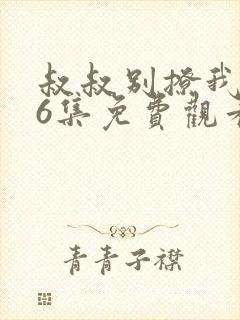 叔叔别撩我
6集免費觀看
青青子襟